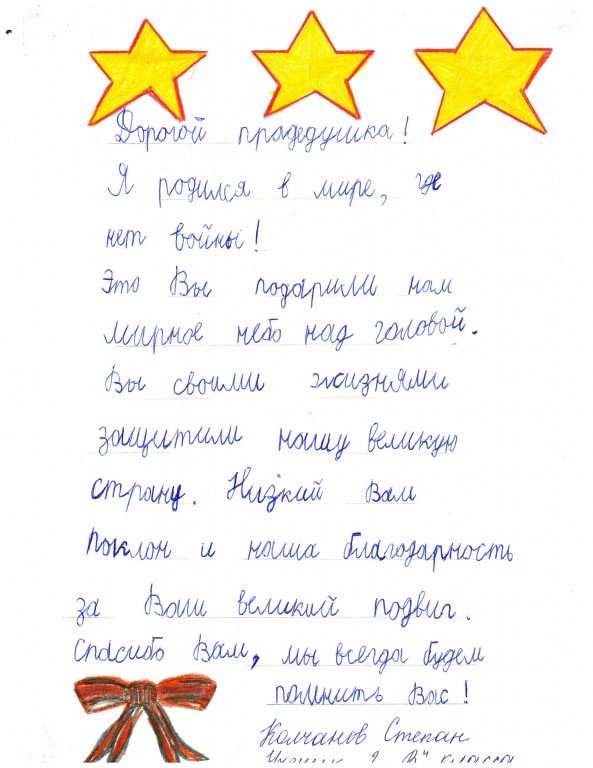 Дорогой прадедушка!
Я родился в мире, где
нет войны!
Это Вы подарили нам
мирное небо над головой.
Вы своими жизнями
защитили нашу великую
страну. Низкий Вам
поклон и наша благодарность
за Ваш великий подвиг.
Спасибо Вам, мы всегда будем
помнить Вас!
Колчанов Степан
Ученик 2 "В" класса